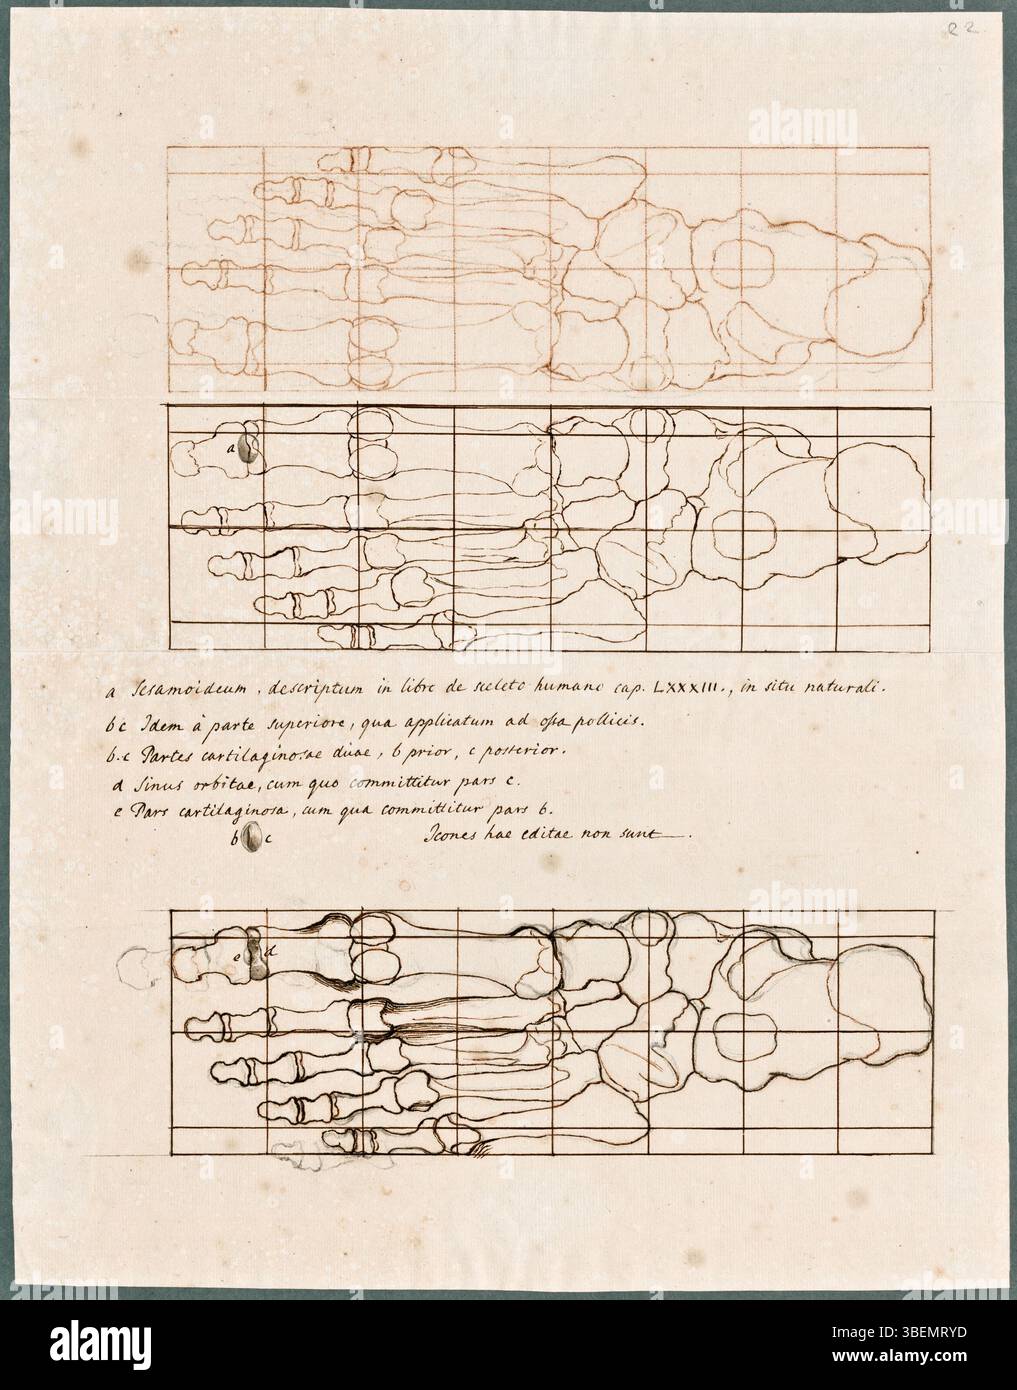 22
a
a Sesamoideum, descriptum in libro de sceleto humano cap. LXXXIII., in situ naturali.
bc Idem à parte superiore, qua applicatum ad ossa pollicis.
b.c Partes cartilaginosae duae, b prior, c posterior.
d Sinus orbitae, cum quo committitur pars c.
e Pars cartilaginosa, cum qua committitur pars b.
b c
Icones hae editae non sunt.
e d
alamy
Image ID: 3BEMRYD
www.alamy.com